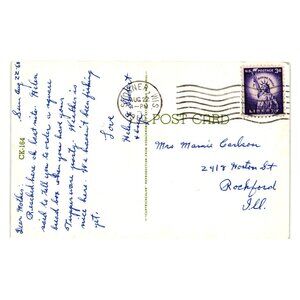 Sun Aug 22 '60
Dear Mother:
Reached here in last nite. Helen
said to tell you to order a square
bread box when you had your
Tupperware party. Weather is
nice here. We haven't been fishing
yet.
Love
Helen
CK-164
WIS.
AUG 22
POST CARD
U.S. POSTAGE 3¢
LIBERTY
Mrs Mamie Carlson
2418 Horton St
Rockford
Ill.